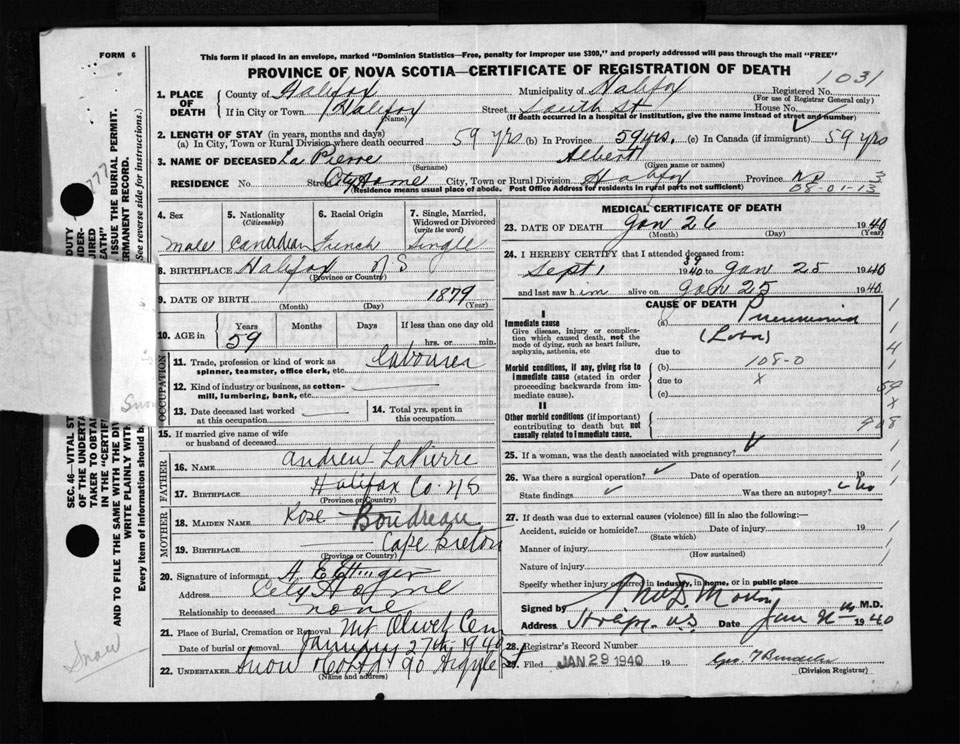 FORM 6
This form if placed in an envelope, marked "Dominion Statistics—Free, penalty for improper use $300," and properly addressed will pass through the mail "FREE"
PROVINCE OF NOVA SCOTIA—CERTIFICATE OF REGISTRATION OF DEATH
1031
1. PLACE OF DEATH County of Halifax Municipality of Halifax Registered No.
(For use of Registrar General only)
If in City or Town Halifax Street South St House No.
(Name) (If death occurred in a hospital or institution, give the name instead of street and number)
2. LENGTH OF STAY (in years, months and days)
(a) In City, Town or Rural Division where death occurred 59 yrs (b) In Province 59 yrs. (c) In Canada (if immigrant) 59 yrs
3. NAME OF DECEASED La Pierre Albert
(Surname) (Given name or names)
RESIDENCE No. Street City Home City, Town or Rural Division Halifax Province NS 3
(Residence means usual place of abode. Post Office Address for residents in rural parts not sufficient) 08-01-13
4. Sex 5. Nationality (Citizenship) 6. Racial Origin 7. Single, Married, Widowed or Divorced (write the word)
male Canadian French Single
8. BIRTHPLACE Halifax NS
(Province or Country)
9. DATE OF BIRTH 1879
(Month) (Day) (Year)
10. AGE in Years Months Days If less than one day old
59 hrs. or min.
OCCUPATION
11. Trade, profession or kind of work as spinner, teamster, office clerk, etc. Labourer
12. Kind of industry or business, as cotton-mill, lumbering, bank, etc.
13. Date deceased last worked at this occupation 14. Total yrs. spent in this occupation
15. If married give name of wife or husband of deceased
FATHER
16. NAME Andrew LaPierre
17. BIRTHPLACE Halifax Co. NS
(Province or Country)
MOTHER
18. MAIDEN NAME Rose Boudreau
19. BIRTHPLACE Cape Breton
(Province or Country)
20. Signature of informant
Address City Home
Relationship to deceased none
21. Place of Burial, Cremation or Removal Mt Olivet Cem
Date of burial or removal January 27th 1940
22. UNDERTAKER Snow 90 Argyle St
(Name and address)
MEDICAL CERTIFICATE OF DEATH
23. DATE OF DEATH Jan 26 1940
(Month) (Day) (Year)
24. I HEREBY CERTIFY that I attended deceased from:
Sept 1 1940 39 to Jan 25 1940
and last saw him alive on Jan 25 1940
CAUSE OF DEATH
I
Immediate cause (a) Pneumonia
Give disease, injury or complication which caused death, not the mode of dying, such as heart failure, asphyxia, asthenia, etc (Lobar)
due to
Morbid conditions, if any, giving rise to immediate cause (stated in order proceeding backwards from immediate cause) (b) 108-0
due to x
(c)
II
Other morbid conditions (if important) contributing to death but not causally related to immediate cause.
1
1
4
1
59
x
908
25. If a woman, was the death associated with pregnancy?
26. Was there a surgical operation? Date of operation 19
State findings Was there an autopsy? no
27. If death was due to external causes (violence) fill in also the following:—
Accident, suicide or homicide? Date of injury 19
(State which)
Manner of injury
(How sustained)
Nature of injury
Specify whether injury occurred in industry, in home, or in public place
Signed by M.D.
Address Date Jan 1940
28. Registrar's Record Number
29. Filed JAN 29 1940 19
(Division Registrar)
SEC. 46—VITAL ST
OF THE UNDERTA
TAKER TO OBTAI
IN THE "CERTIFI
AND TO FILE THE SAME WITH THE DIV
WRITE PLAINLY WITH
Every item of information should be
DUTY
UNDER-
UIRED
EATH"
ISSUE THE BURIAL PERMIT.
PERMANENT RECORD.
(See reverse side for instructions.)
777
Snow
Snow